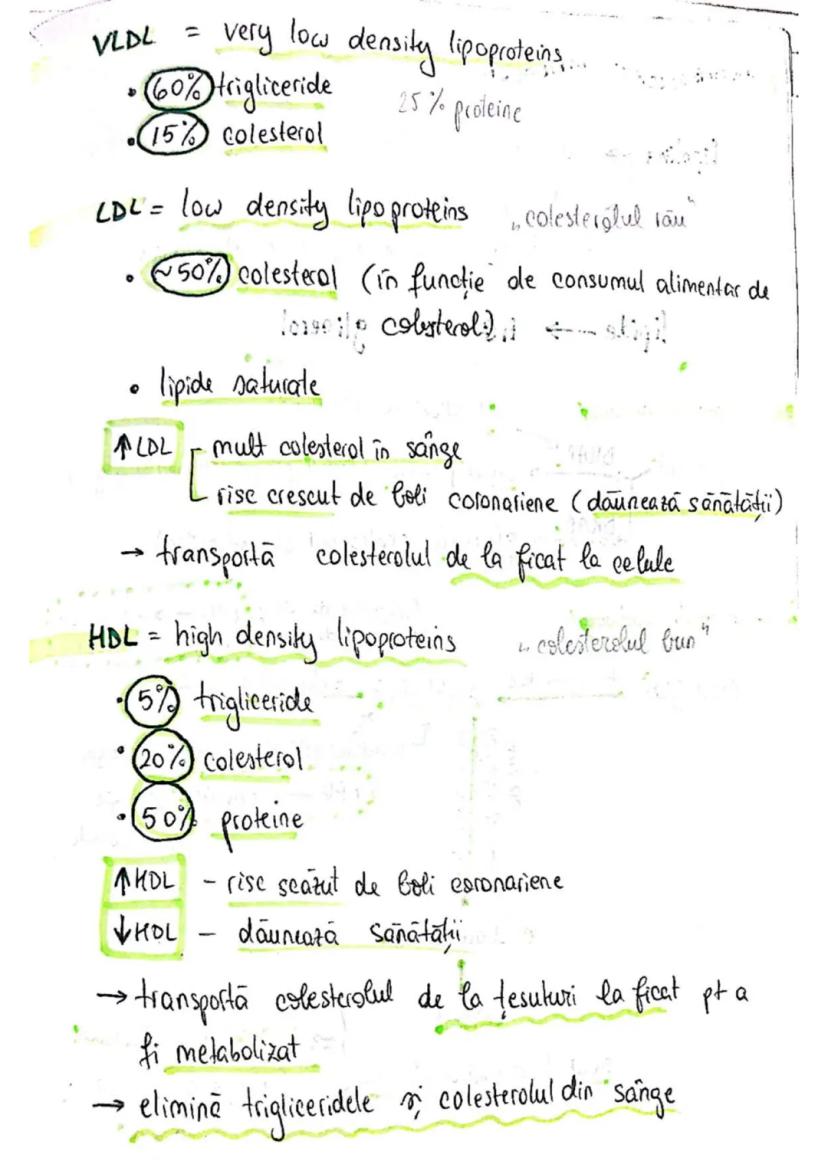 VLDL = very low density lipoproteins
• 60% trigliceride
25% proteine
• 15% colesterol
LDL = low density lipoproteins „colesterolul rău"
• ~50% colesterol (în funcție de consumul alimentar de
colesterol)
• lipide saturate
↑LDL mult colesterol în sânge
risc crescut de boli coronariene (dăunează sănătății)
→ transportă colesterolul de la ficat la celule
HDL = high density lipoproteins „colesterolul bun"
• 5% trigliceride
• 20% colesterol
• 50% proteine
↑HDL - risc scăzut de boli coronariene
↓HDL - dăunează sănătății
→ transportă colesterolul de la țesuturi la ficat pt a
fi metabolizat
→ elimină trigliceridele și colesterolul din sânge